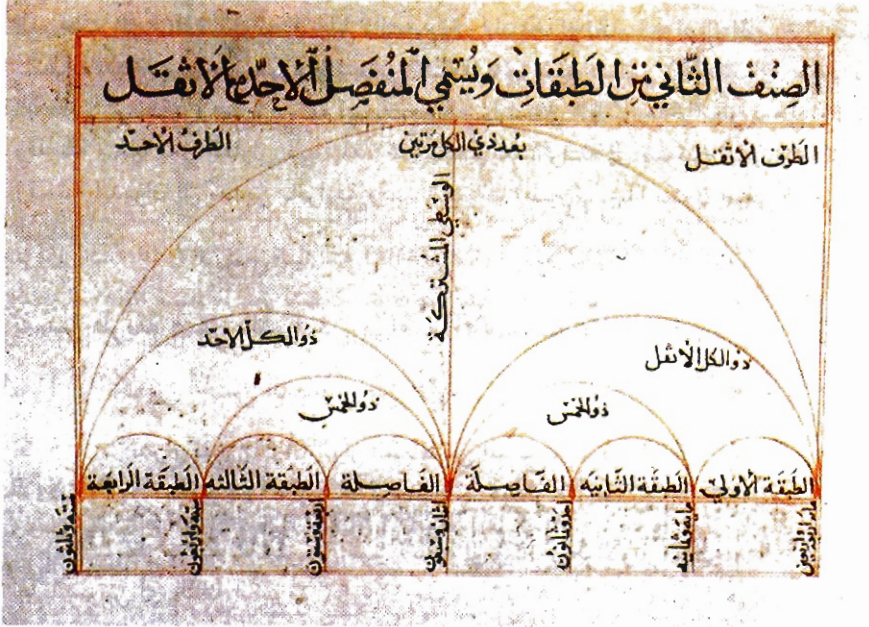 الصِنفُ الثَّاني مِن الطَبَقَاتِ وَيُسَمي المُنفَصِلُ الاحَدّ والاثقَل
الطَرَف الاثقل
بعد ذي الكل مرتين
الطَرف الاحدّ
الوسطي المشتركة
ذو الكل الاثقل
ذُو الكل الاحَدّ
ذُو الخمسْ
ذُو الخمسْ
الطَبقَة الاولي
الطبقة الثَّانِيَه
الفَاصِلَة
الفَاصِلة
الطبقة الثالثه
الطبقَة الرابعَة